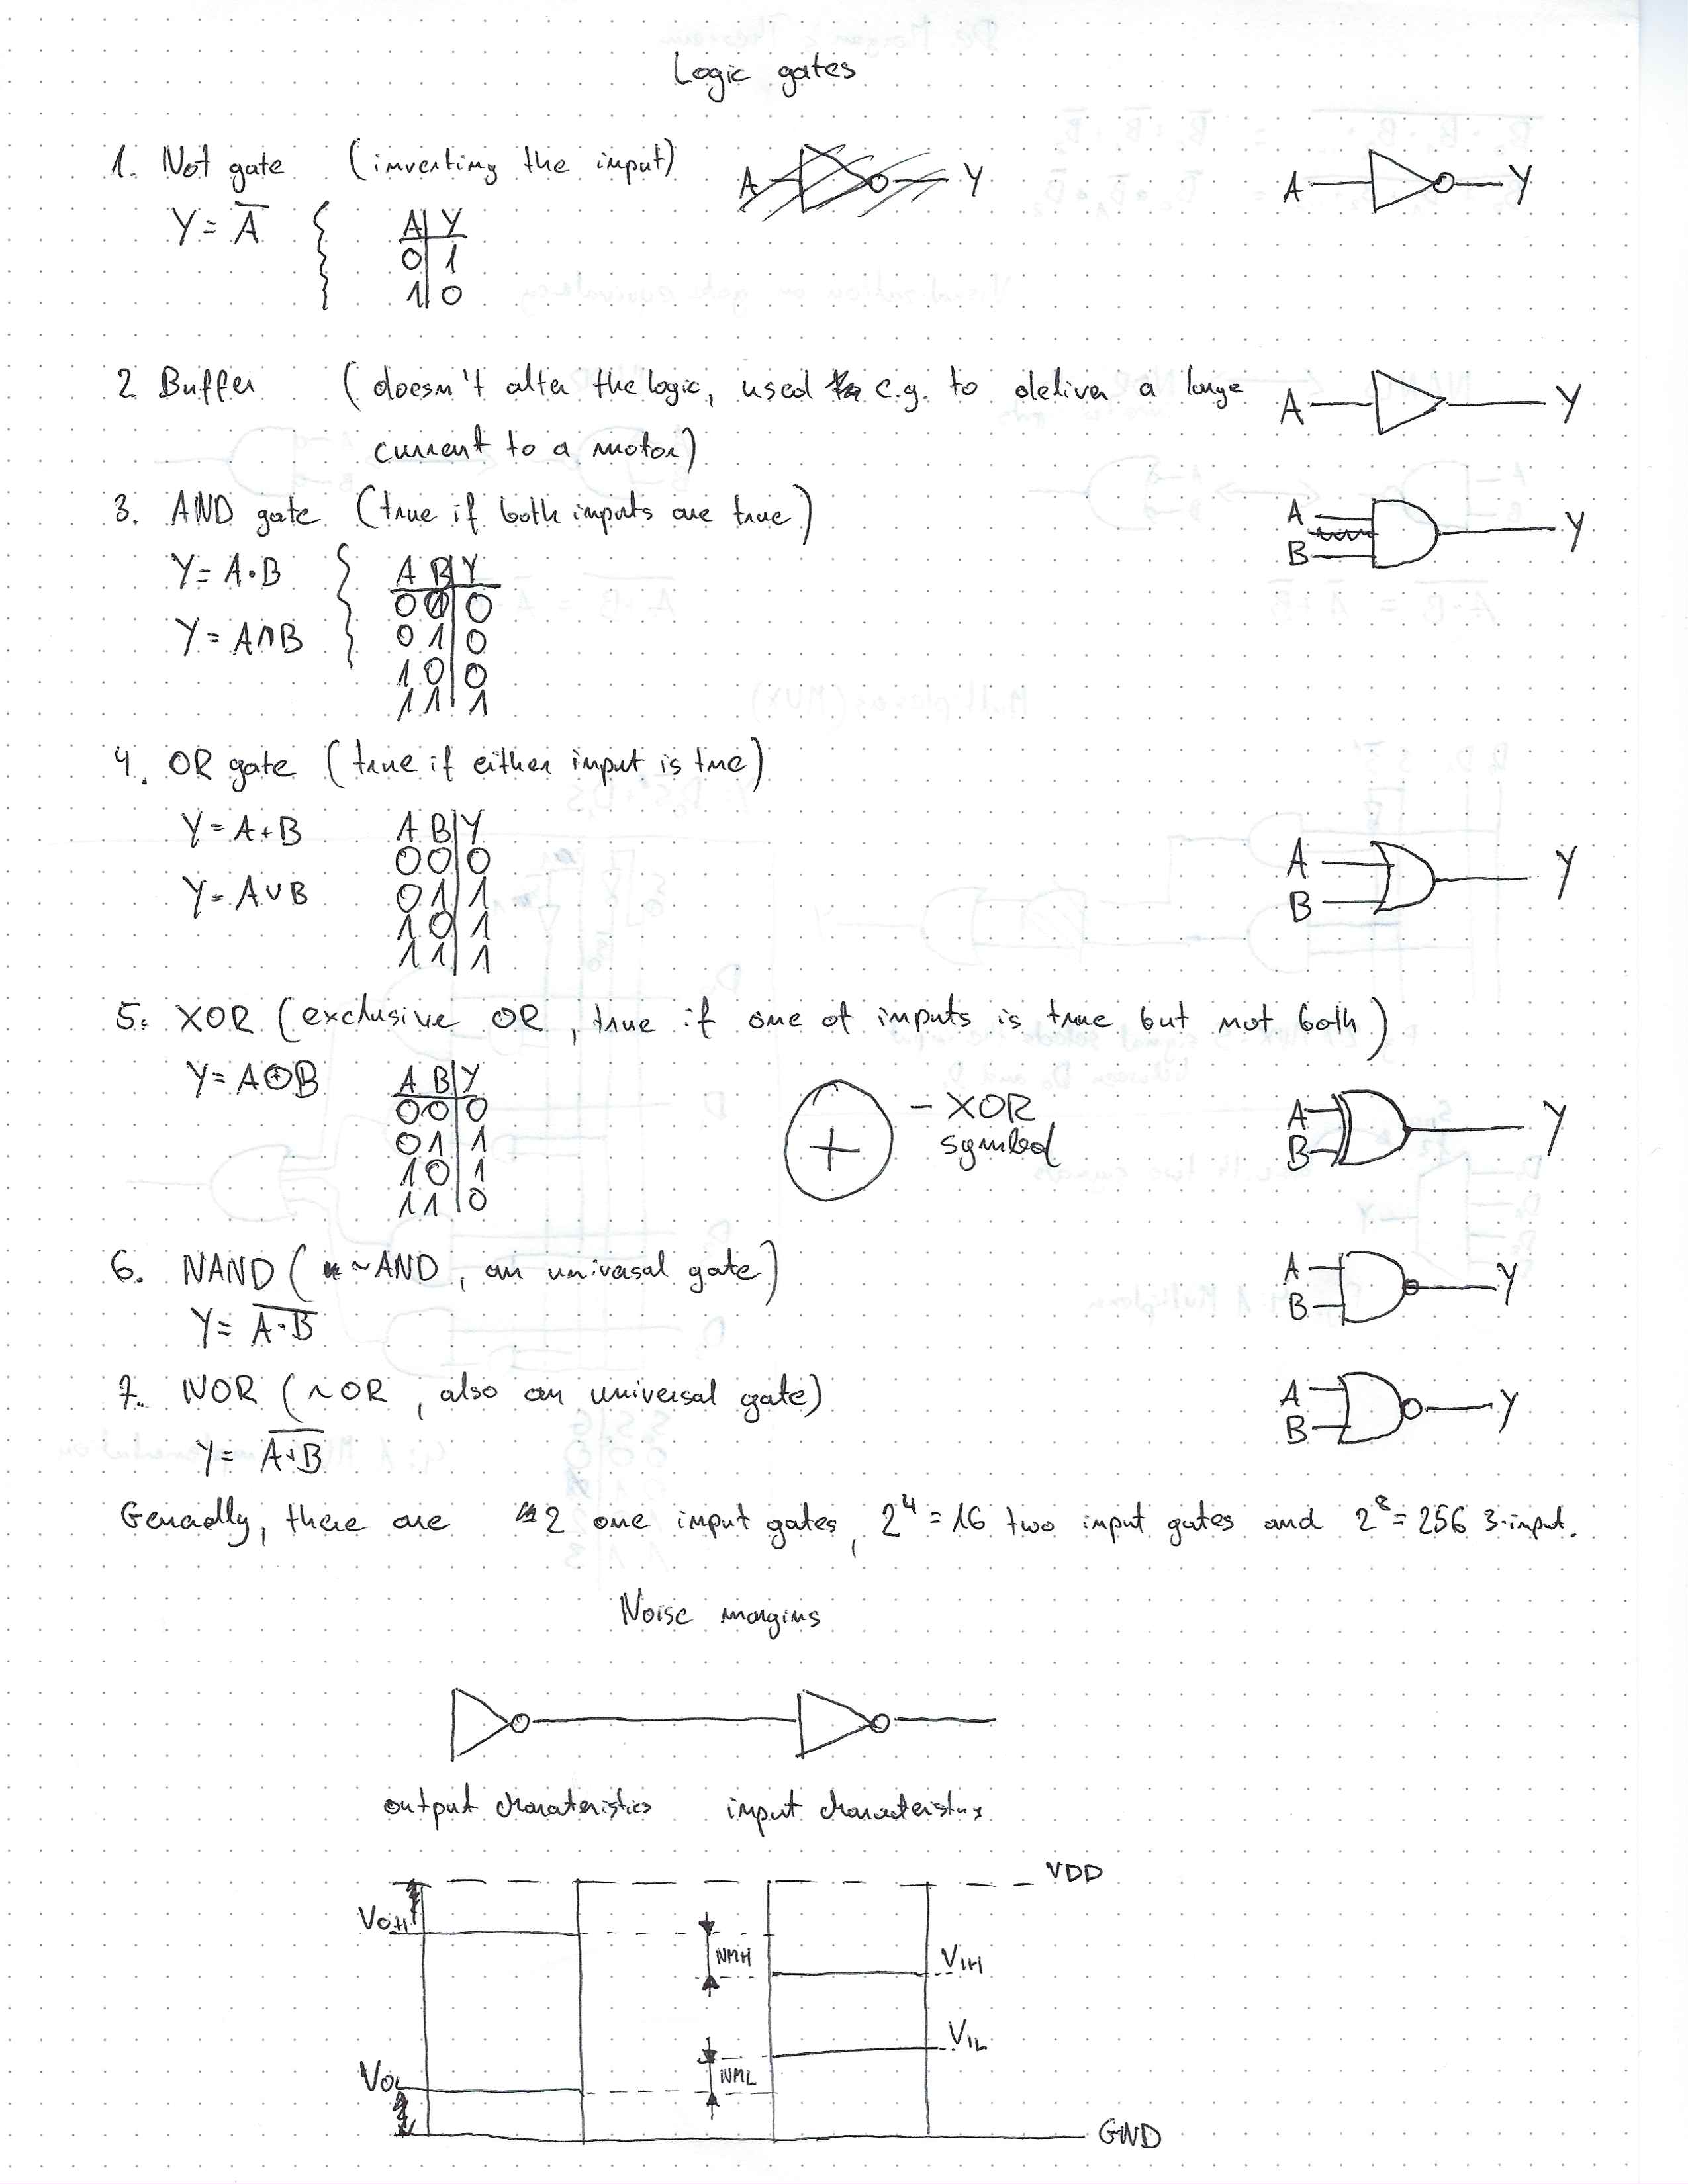 Logic gates
1. Not gate (inverting the input) A Y A Y
Y = A̅
A Y
0 1
1 0
2 Buffer (doesn't alter the logic, used e.g. to deliver a large A Y
current to a motor)
3. AND gate (true if both inputs are true) A B Y
Y = A·B
Y = A∩B
A B Y
0 0 0
0 1 0
1 0 0
1 1 1
4. OR gate (true if either input is true)
Y = A+B
Y = A∪B
A B Y
0 0 0
0 1 1
1 0 1
1 1 1
A B Y
5. XOR (exclusive OR, true if one of inputs is true but not both)
Y = A⊕B
A B Y
0 0 0
0 1 1
1 0 1
1 1 0
+ - XOR
symbol
A B Y
6. NAND (~AND, an universal gate) A B Y
Y = A̅·̅B̅
7. NOR (~OR, also an universal gate) A B Y
Y = A̅+̅B̅
Generally, there are 2 one input gates, 2⁴ = 16 two input gates and 2⁸ = 256 3-input.
Noise margins
output charateristics input characteristics
VDD
VOH
NMH VIH
VIL
VOL NML
GND